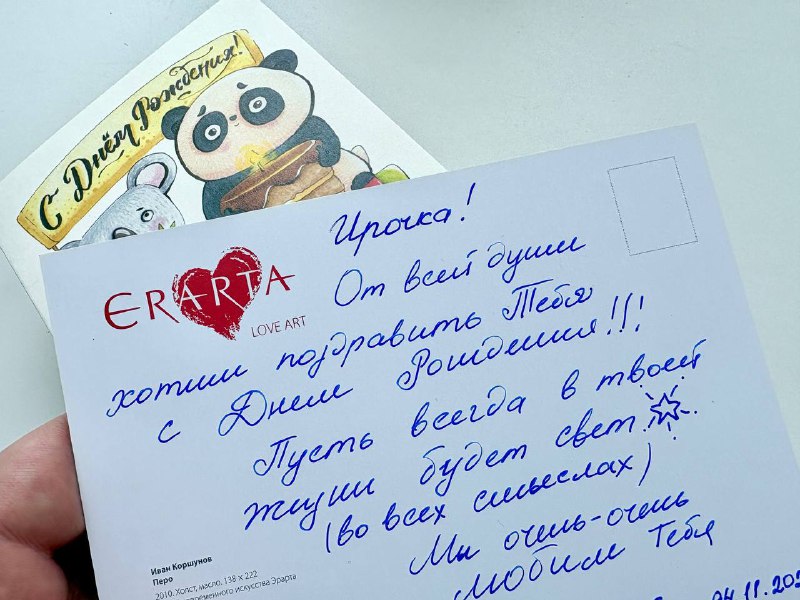 С Днём Рождения!
ERARTA
LOVE ART
Ирочка!
От всей души
хотим поздравить Тебя
с Днем Рождения!!!
Пусть всегда в твоей
жизни будет свет
(во всех смыслах)
Мы очень-очень
любим Тебя
04.11.202
Иван Коршунов
Перо
2010. Холст, масло. 138 x 222
искусства Эрарта